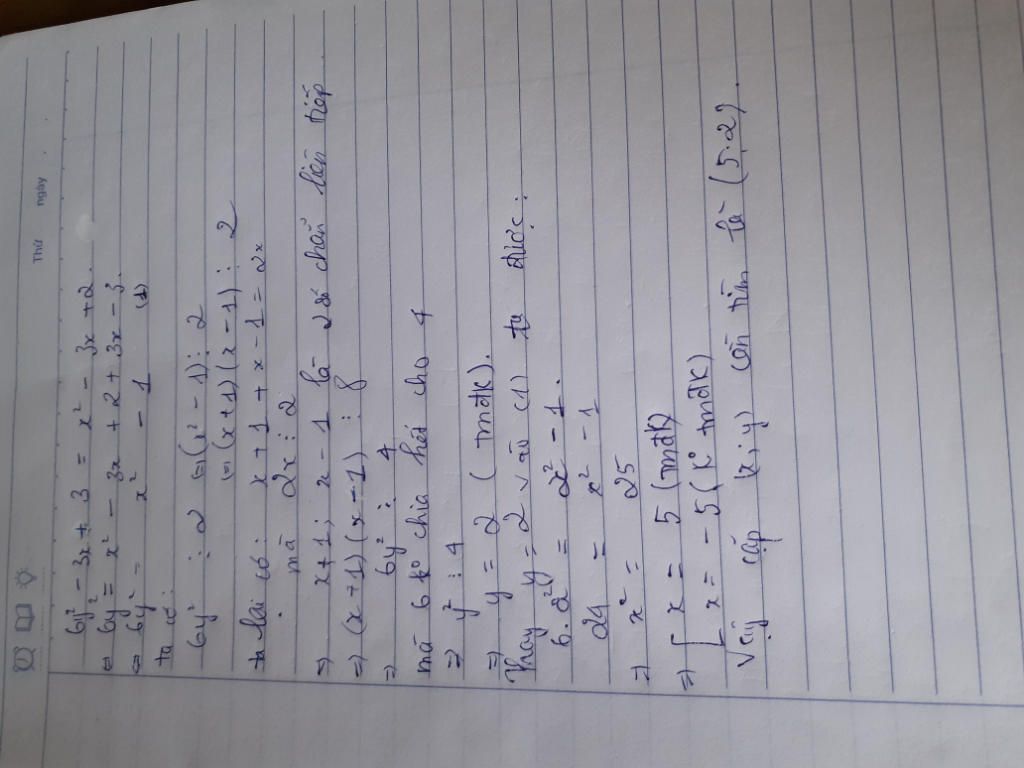 Thứ ngày
6y² - 3x + 3 = x² - 3x + 2.
⇔ 6y² = x² - 3x + 2 + 3x - 3.
⇔ 6y² = x² - 1 (1)
ta có:
6y² ⋮ 2 ⇒ (x² - 1) ⋮ 2
⇒ (x+1)(x-1) ⋮ 2
ta lại có: x+1 + x-1 = 2x
mà 2x ⋮ 2
⇒ x+1; x-1 là 2 số chẵn liên tiếp.
⇒ (x+1)(x-1) ⋮ 8
⇒ 6y² ⋮ 4
mà 6 k° chia hết cho 4
⇒ y² ⋮ 4
⇒ y = 2 (tmđk).
Thay y = 2 vào (1) ta được:
6.2² = x² - 1.
24 = x² - 1
⇒ x² = 25
⇒ [ x = 5 (tmđk)
x = -5 (k° tmđk)
Vậy cặp (x;y) cần tìm là (5.2).